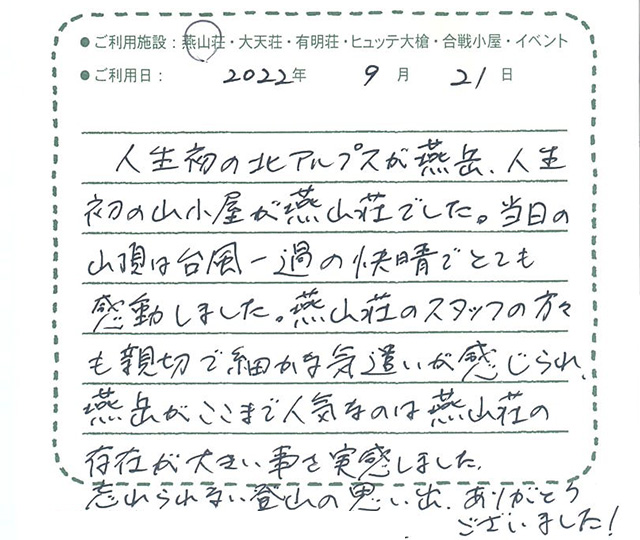 ●ご利用施設：燕山荘・大天荘・有明荘・ヒュッテ大槍・合戦小屋・イベント
●ご利用日： 2022年 9月 21日
人生初の北アルプスが燕岳、人生
初の山小屋が燕山荘でした。当日の
山頂は台風一過の快晴でとても
感動しました。燕山荘のスタッフの方々
も親切で細かな気遣いが感じられ、
燕岳がここまで人気なのは燕山荘の
存在が大きい事を実感しました。
忘れられない登山の思い出、ありがとう
ございました！